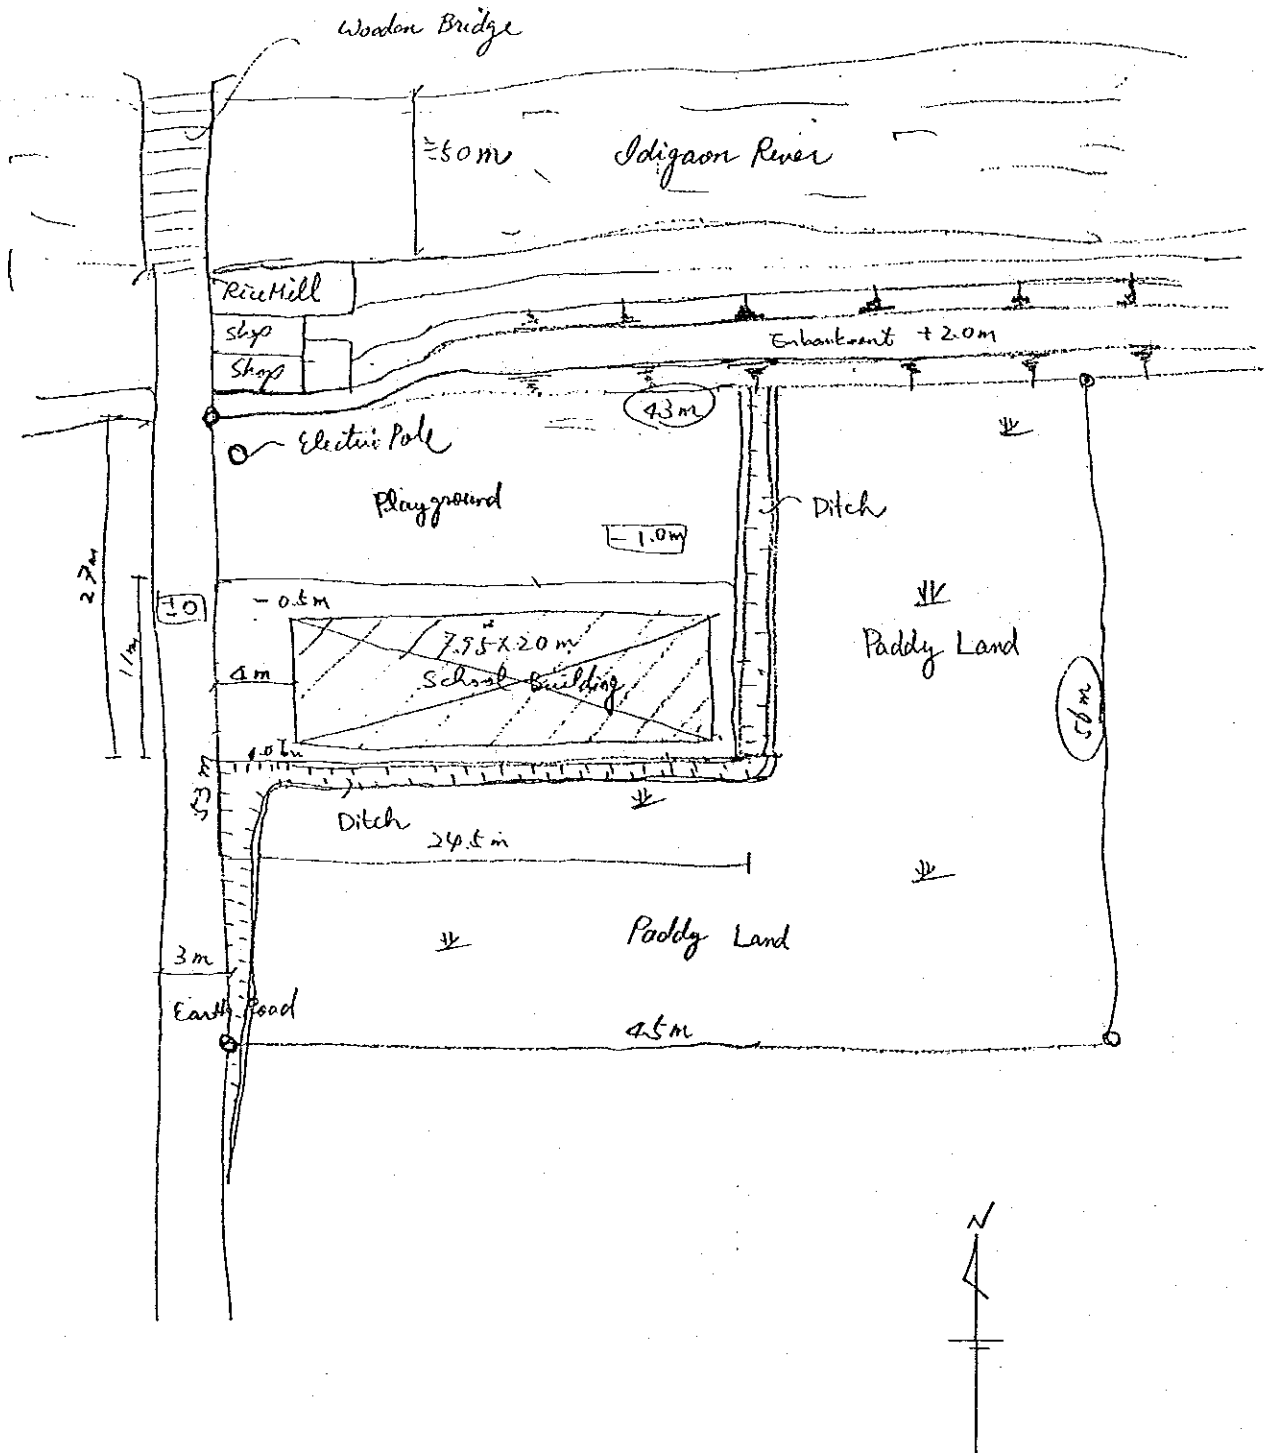 Wooden Bridge
≒50m
Idigaon River
Rice Mill
Shop
Shop
Embankment +2.0m
43m
Electric Pole
Playground
Ditch
-1.0m
27m
11m
±0
-0.5m
7.95 x 20 m
School Building
4m
Paddy Land
56m
53m
Ditch
24.5m
Paddy Land
3m
Earth Road
45m
N